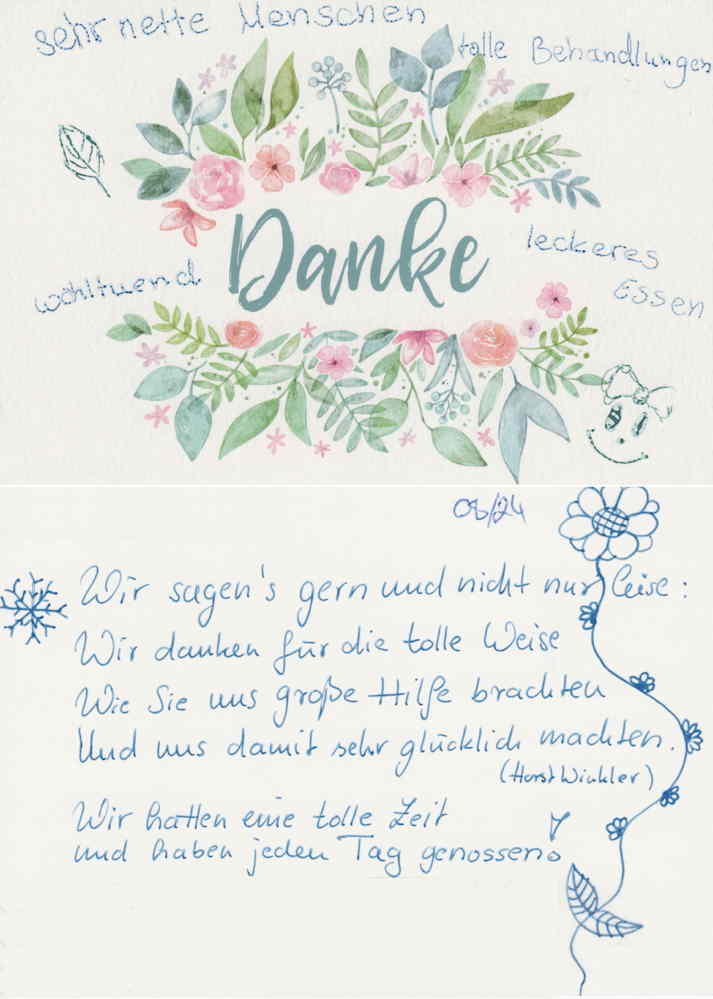 sehr nette Menschen
tolle Behandlungen
Danke
leckeres
Essen
wohltuend
08/24
Wir sagen's gern und nicht nur leise:
Wir danken für die tolle Weise
Wie Sie uns große Hilfe brachten
Und uns damit sehr glücklich machten.
(Horst Winkler)
Wir hatten eine tolle Zeit
und haben jeden Tag genossen!